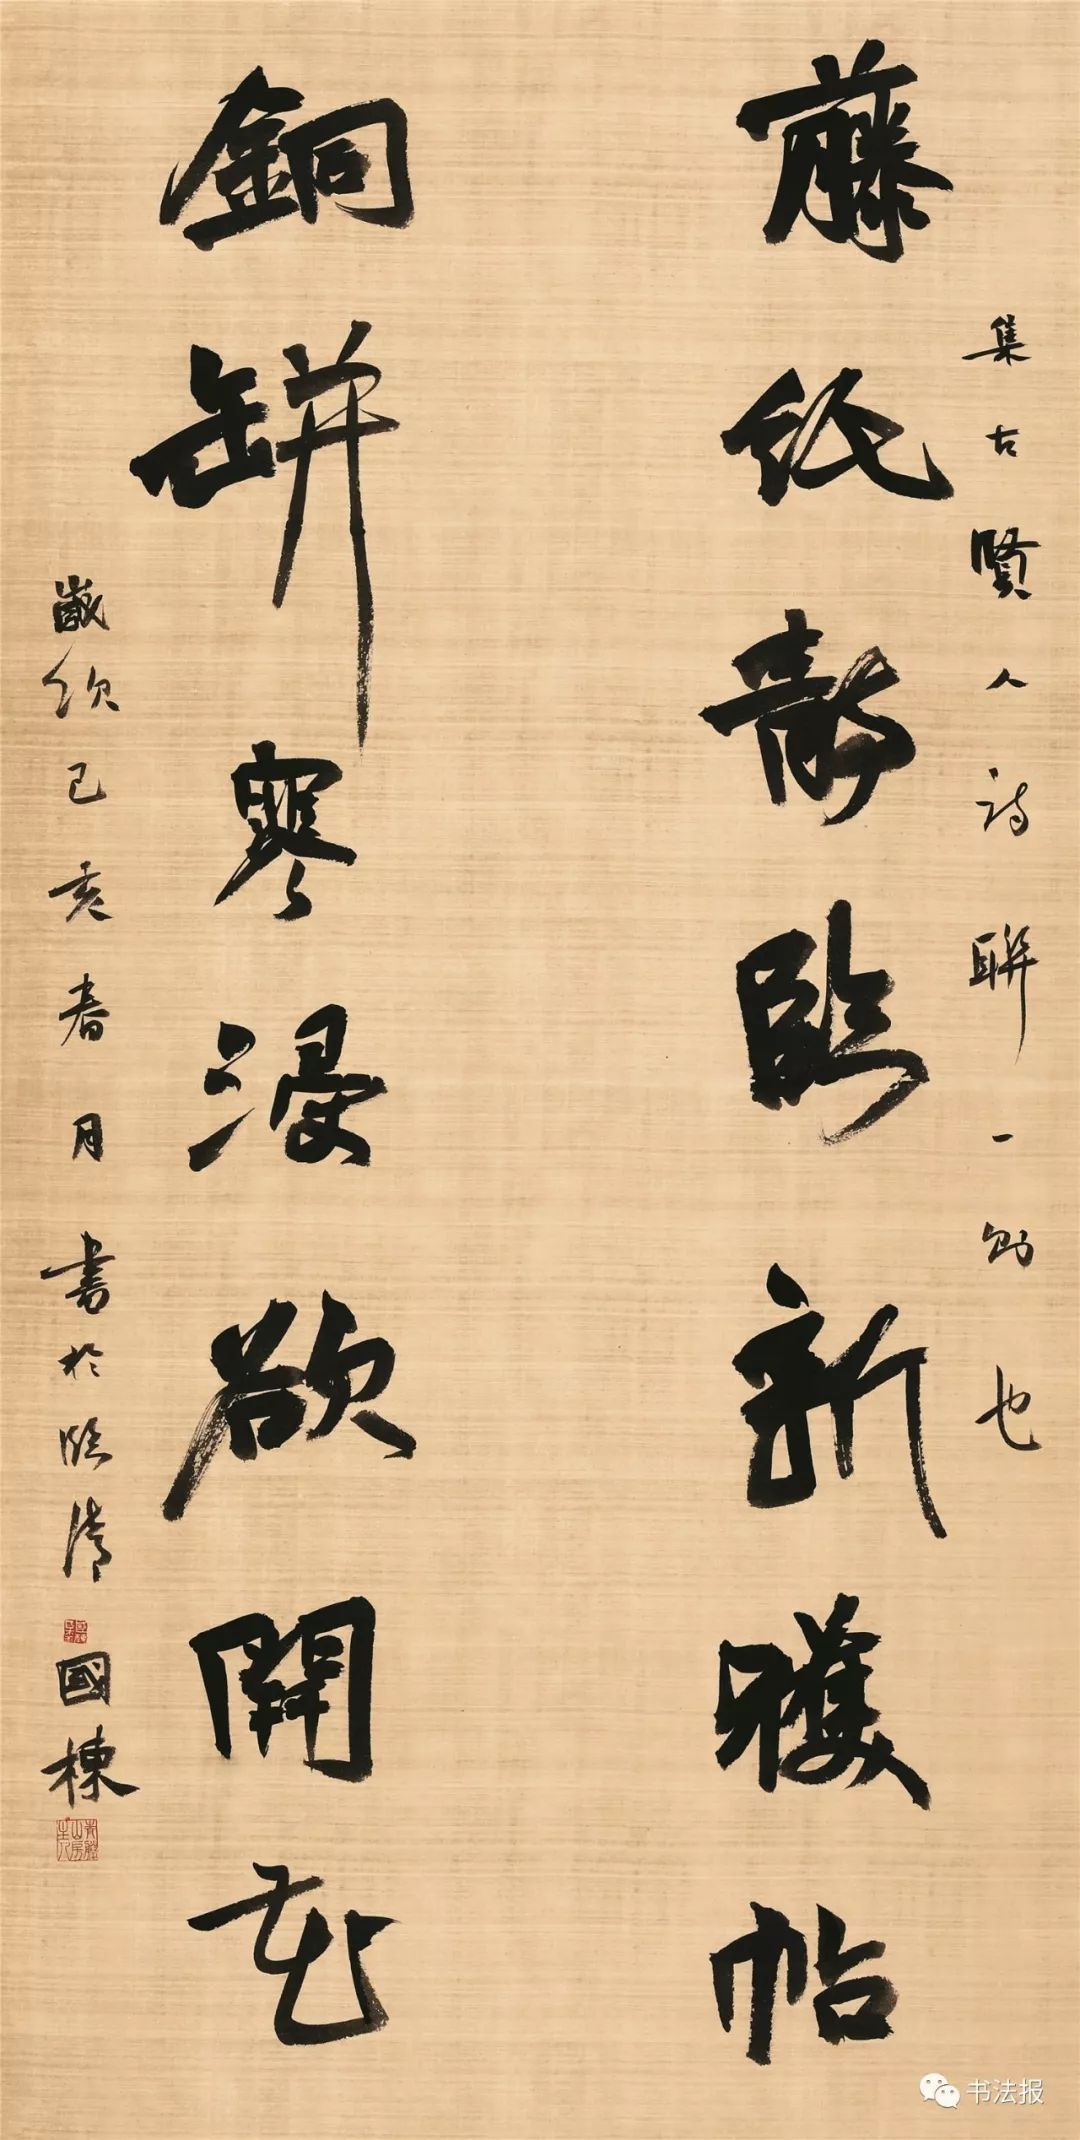 集古賢人詩聯一則也
藤紙静臨新獲帖
銅缾寒浸欲開花
歲次己亥春月書於臨清國棟
书法报